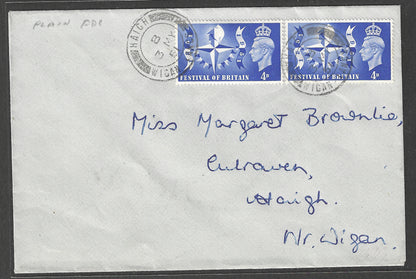 PLAIN FDC
HAIGH
WIGAN
FESTIVAL OF BRITAIN 4D
FESTIVAL OF BRITAIN 4D
WIGAN
Miss Margaret Brownlie,
Culraven,
Haigh.
Nr. Wigan.